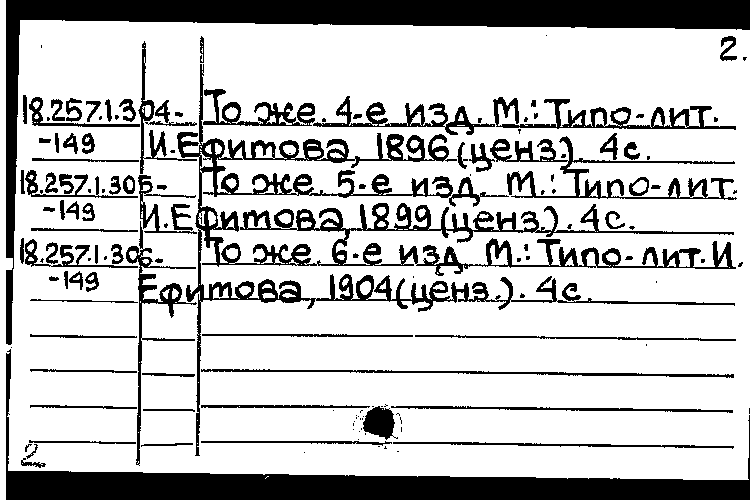 2.
18.257.1.304- То же. 4-е изд. М.: Типо-лит.
-149 И.Ефитова, 1896 (ценз.). 4с.
18.257.1.305- То же. 5-е изд. М.: Типо-лит.
-149 И.Ефитова, 1899 (ценз.). 4с.
18.257.1.306- То же. 6-е изд. М.: Типо-лит. И.
-149 Ефитова, 1904 (ценз.). 4с.
2